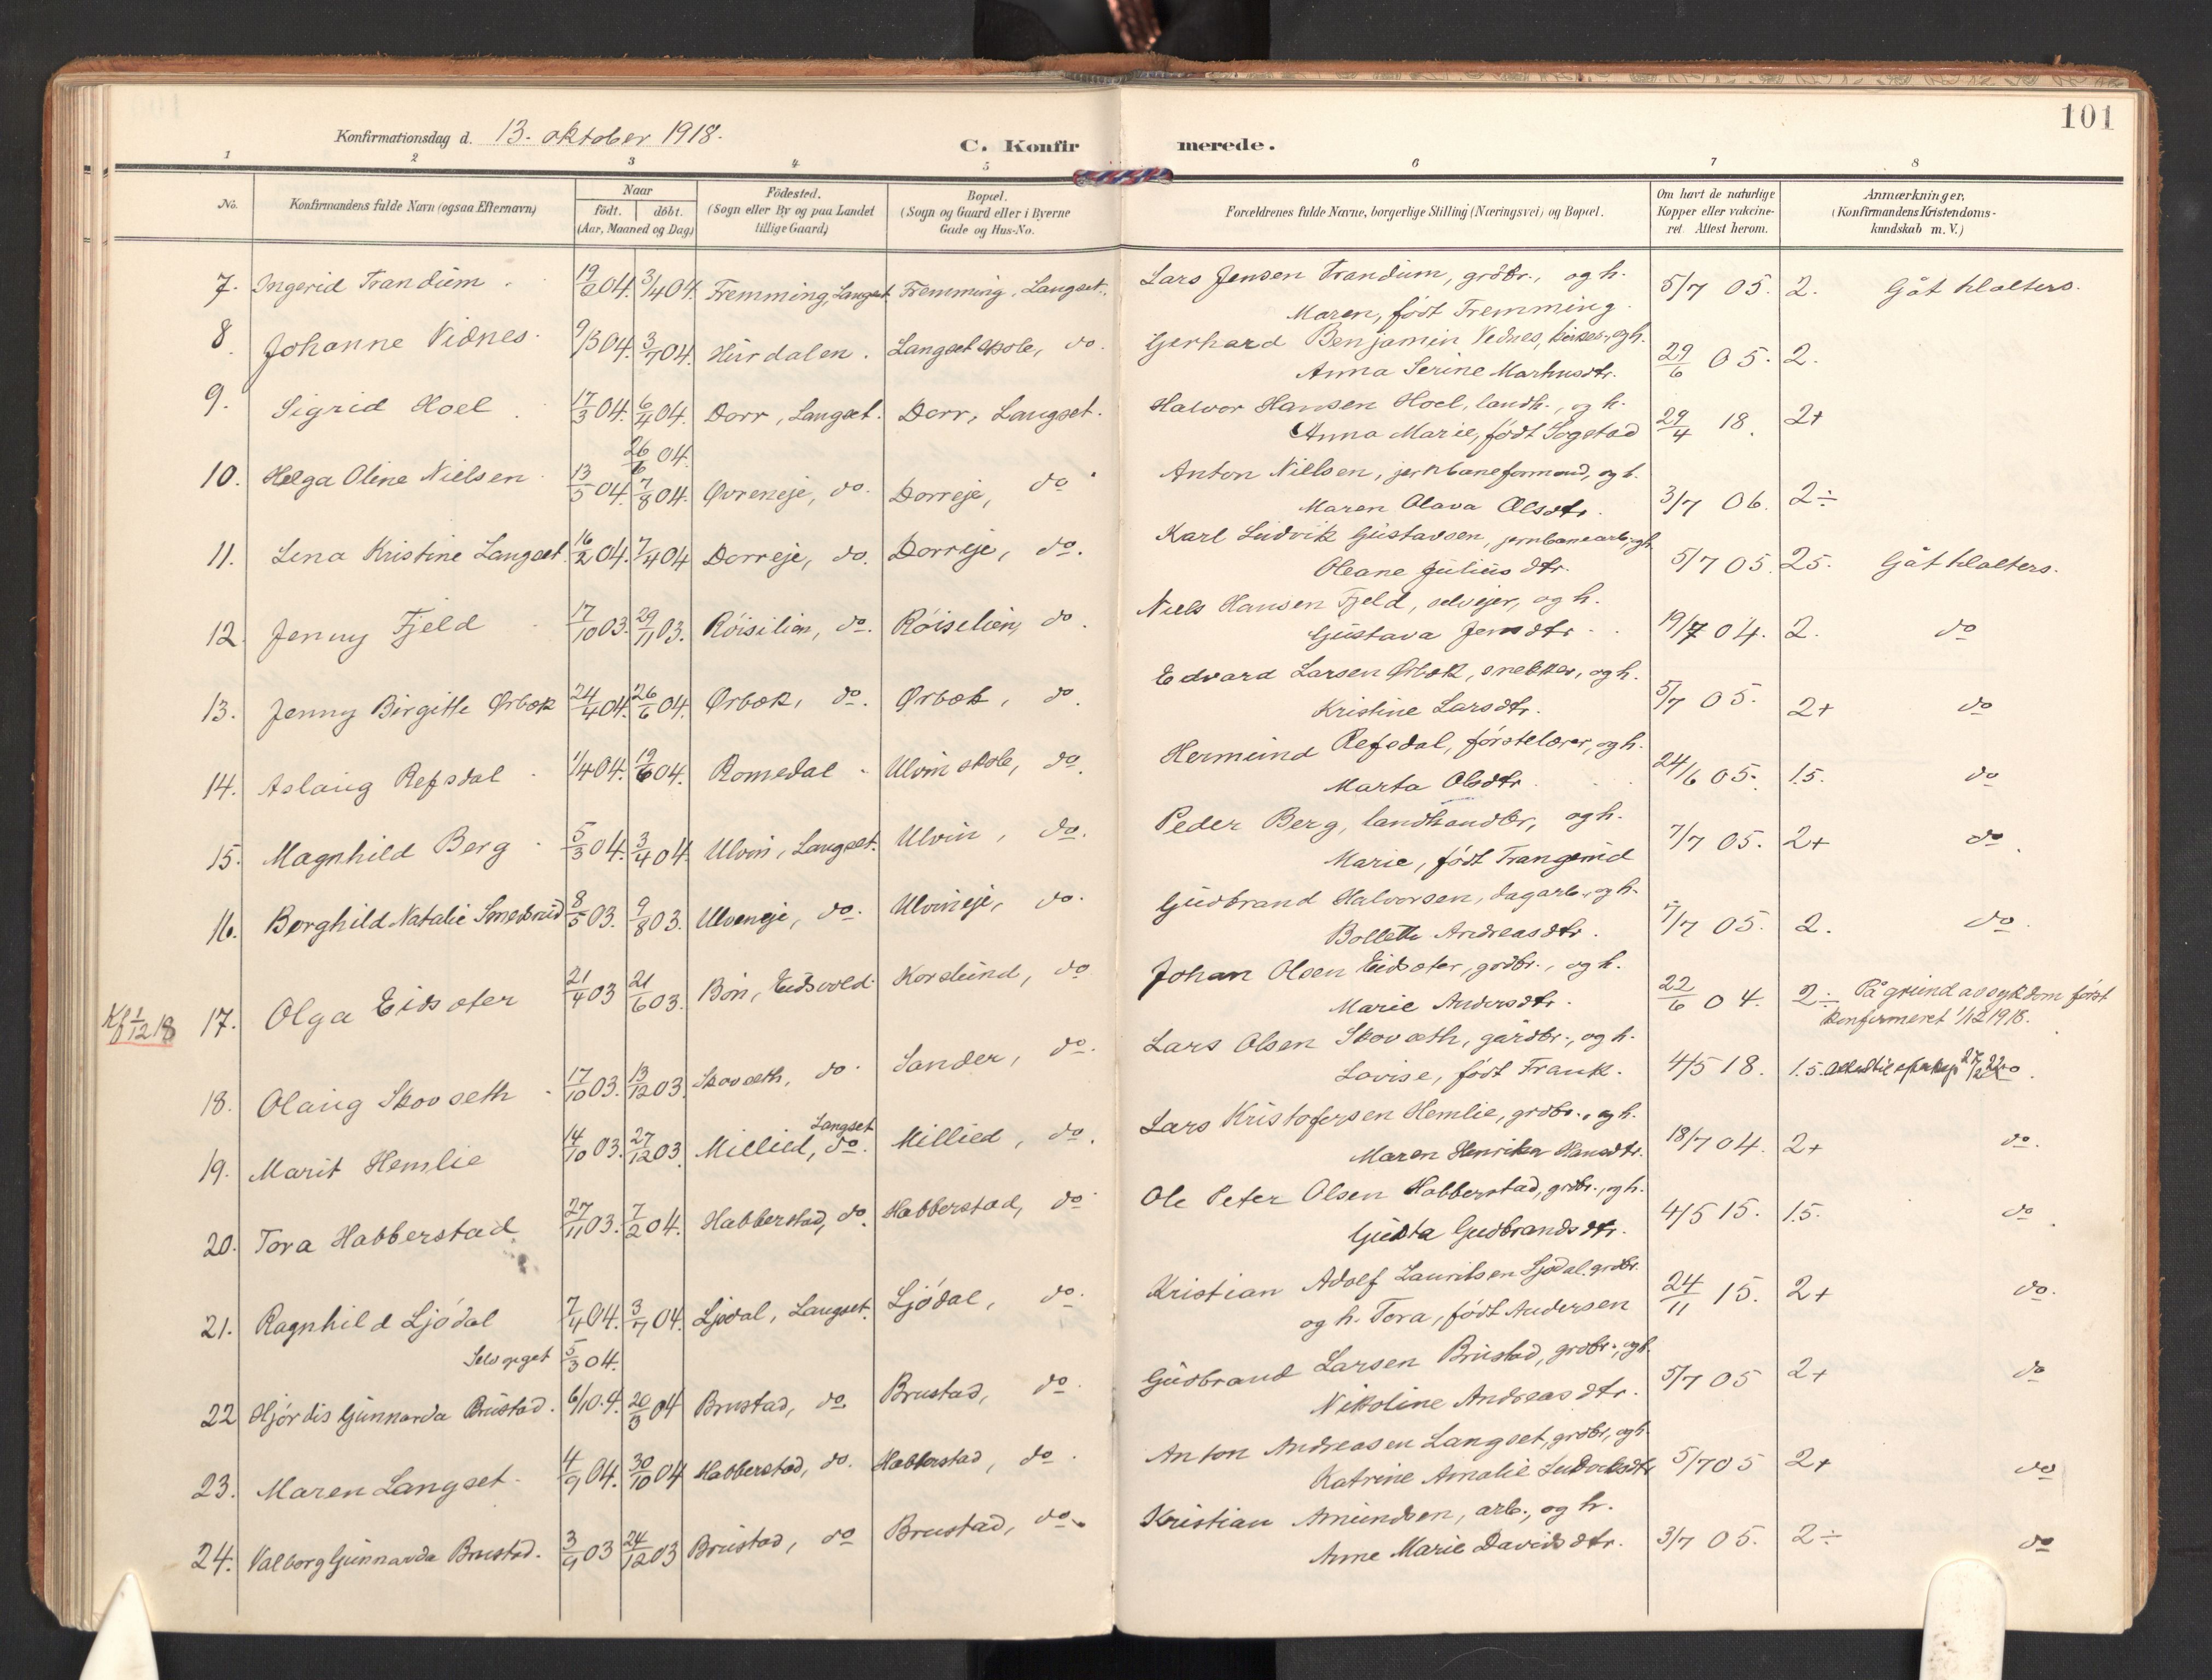 101
Konfirmationsdag d. 13. oktober 1918.
C. Konfirmerede.
1 2 3 4 5 6 7 8
No. Konfirmandens fulde Navn (ogsaa Efternavn) Naar født. døbt. (Aar, Maaned og Dag) Fødested. (Sogn eller By og paa Landet tillige Gaard) Bopæl. (Sogn og Gaard eller i Byerne Gade og Hus-No. Forældrenes fulde Navne, borgerlige Stilling (Næringsvei) og Bopæl. Om havt de naturlige Kopper eller vakcineret. Attest herom. Anmærkninger, (Konfirmandens Kristendomskundskab m. V.)
7. Ingerid Trandum 19/2 04. 3/4 04. Fremming, Langset. Fremming, Langset. Lars Jensen Trandum, grdbr., og h. 5/7 05. 2. Gåt til alters.
Maren, født Fremming.
8. Johanne Vidnes. 9/3 04. 3/7 04. Hurdalen. Langset skole, do. Gerhard Benjamin Vednes, og h. 29/6 05. 2.
Anna Serine Markusdtr.
9. Sigrid Hoel 17/3 04. 6/4 04. Dorr, Langset. Dorr, Langset. Halvor Hansen Hoel, landh., og h. 29/4 18. 2+
Anna Marie, født Sogstad
26/6 04.
10. Helga Oline Nielsen 13/5 04. 7/8 04. Øvreneje, do. Dorreje, do Anton Nielsen, jernbaneformand, og h. 3/7 06. 2÷
Maren Olava Olsdtr.
11. Lina Kristine Langset 16/2 04. 7/4 04 Dorreje, do. Dorreje, do. Karl Ludvik Gustavsen, jernbanearb., og h. 5/7 05. 2.5. Gåt til alters.
Oleane Juliusdtr.
12. Jenny Fjeld 17/10 03. 29/11 03. Røisilien, do. Røisilien, do. Niels Hansen Fjeld, selvejer, og h. 19/7 04. 2. do
Gustava Jensdtr.
13. Jenny Birgitte Ørbæk 24/4 04. 26/6 04. Ørbæk, do. Ørbæk, do. Edvard Larsen Ørbæk, snekker, og h. 5/7 05. 2+ do
Kristine Larsdtr.
14. Aslaug Refsdal 1/4 04. 19/6 04. Romedal Ulvin skole, do. Hermund Refsdal, førstelærer, og h. 24/6 05. 1.5. do
Marta Olsdtr.
15. Magnhild Berg 5/3 04. 3/4 04. Ulvin, Langset. Ulvin, do. Peder Berg, landhandler, og h. 7/7 05. 2+ do.
Marie, født Trangerud
16. Borghild Natalie Smedsrud 8/5 03. 9/8 03. Ulveneje, do. Ulvineje, do. Gudbrand Halvorsen, dagarb., og h. 7/7 05. 2. do.
Bollette Andreasdtr.
Kf 1/12 18 17. Olga Eidsæter 21/4 03 21/6 03. Bøn, Eidsvold. Korslund, do Johan Olsen Eidsæter, grdbr., og h. 22/6 04. 2÷ På grund av sykdom først
Marie Andersdtr. konfirmeret 1/12 1918.
18. Olaug Skovseth 17/10 03. 13/12 03. Skovseth, do. Sander, do. Lars Olsen Skovseth, gårdbr., og h. 4/5 18. 1.5.
Lovise, født Frank.
19. Marit Hemlie 14/10 03. 27/12 03. Millied, do. Langset Millied, do. Lars Kristofersen Hemlie, grdbr., og h. 18/7 04. 2+ do.
Maren Henrika Hansdtr.
20. Tora Habberstad 27/11 03. 7/2 04. Habberstad, do. Habberstad, do Ole Peter Olsen Habberstad, grdbr., og h. 4/5 15. 1.5. do.
Gusta Gudbrandsdtr.
21. Ragnhild Ljødal 7/4 04. 3/7 04. Ljødal, Langset. Ljødal, do. Kristian Adolf Lauritsen Ljødal. grdbr. 24/11 15. 2+ do.
og h. Tora, født Andersen
Selv opget 5/3 04.
22 Hjørdis Gunnarda Brustad. 6/1 04. 20/3 04 Brustad, do. Brustad, do. Gudbrand Larsen Brustad, grdbr., og h. 5/7 05 2+ do
Nikoline Andreasdtr.
23. Maren Langset. 4/9 04. 30/10 04 Habberstad, do. Habberstad, do. Anton Andreasen Langset, grdbr., og h. 5/7 05 2+ do
Katrine Amalie Ludviksdtr
24. Valborg Gunnarda Brustad. 3/9 03 24/12 03 Brustad, do Brustad, do. Kristian Amundsen, arb., og h. 3/7 05. 2÷ do
Anne Marie Davidsdtr.